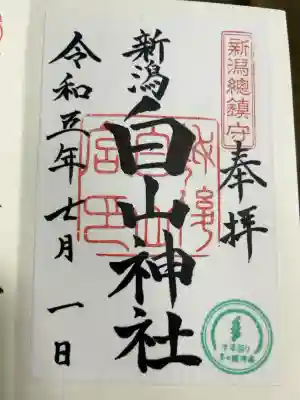 新潟總鎮守
奉拝
新潟白山神社
令和五年七月一日